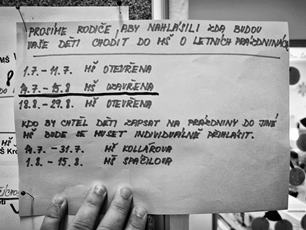 PROSÍME RODIČE, ABY NAHLÁSILI ZDA BUDOU
VAŠE DĚTI CHODIT DO MŠ O LETNÍCH PRÁZDNINÁCH
1.7. – 11.7. MŠ OTEVŘENA
14.7. – 15.8 MŠ UZAVŘENA
18.8. – 29.8. MŠ OTEVŘENA
KDO BY CHTĚL DĚTI ZAPSAT NA PRÁZDNINY DO JINÉ
MŠ BUDE SE MUSET INDIVIDUÁLNĚ PŘIHLÁSIT.
14.7. – 31.7. MŠ KOLLÁROVA
1.8. – 15.8. MŠ SPÁČILOVA